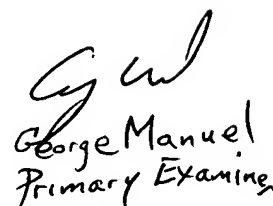 George Manuel
Primary Examiner